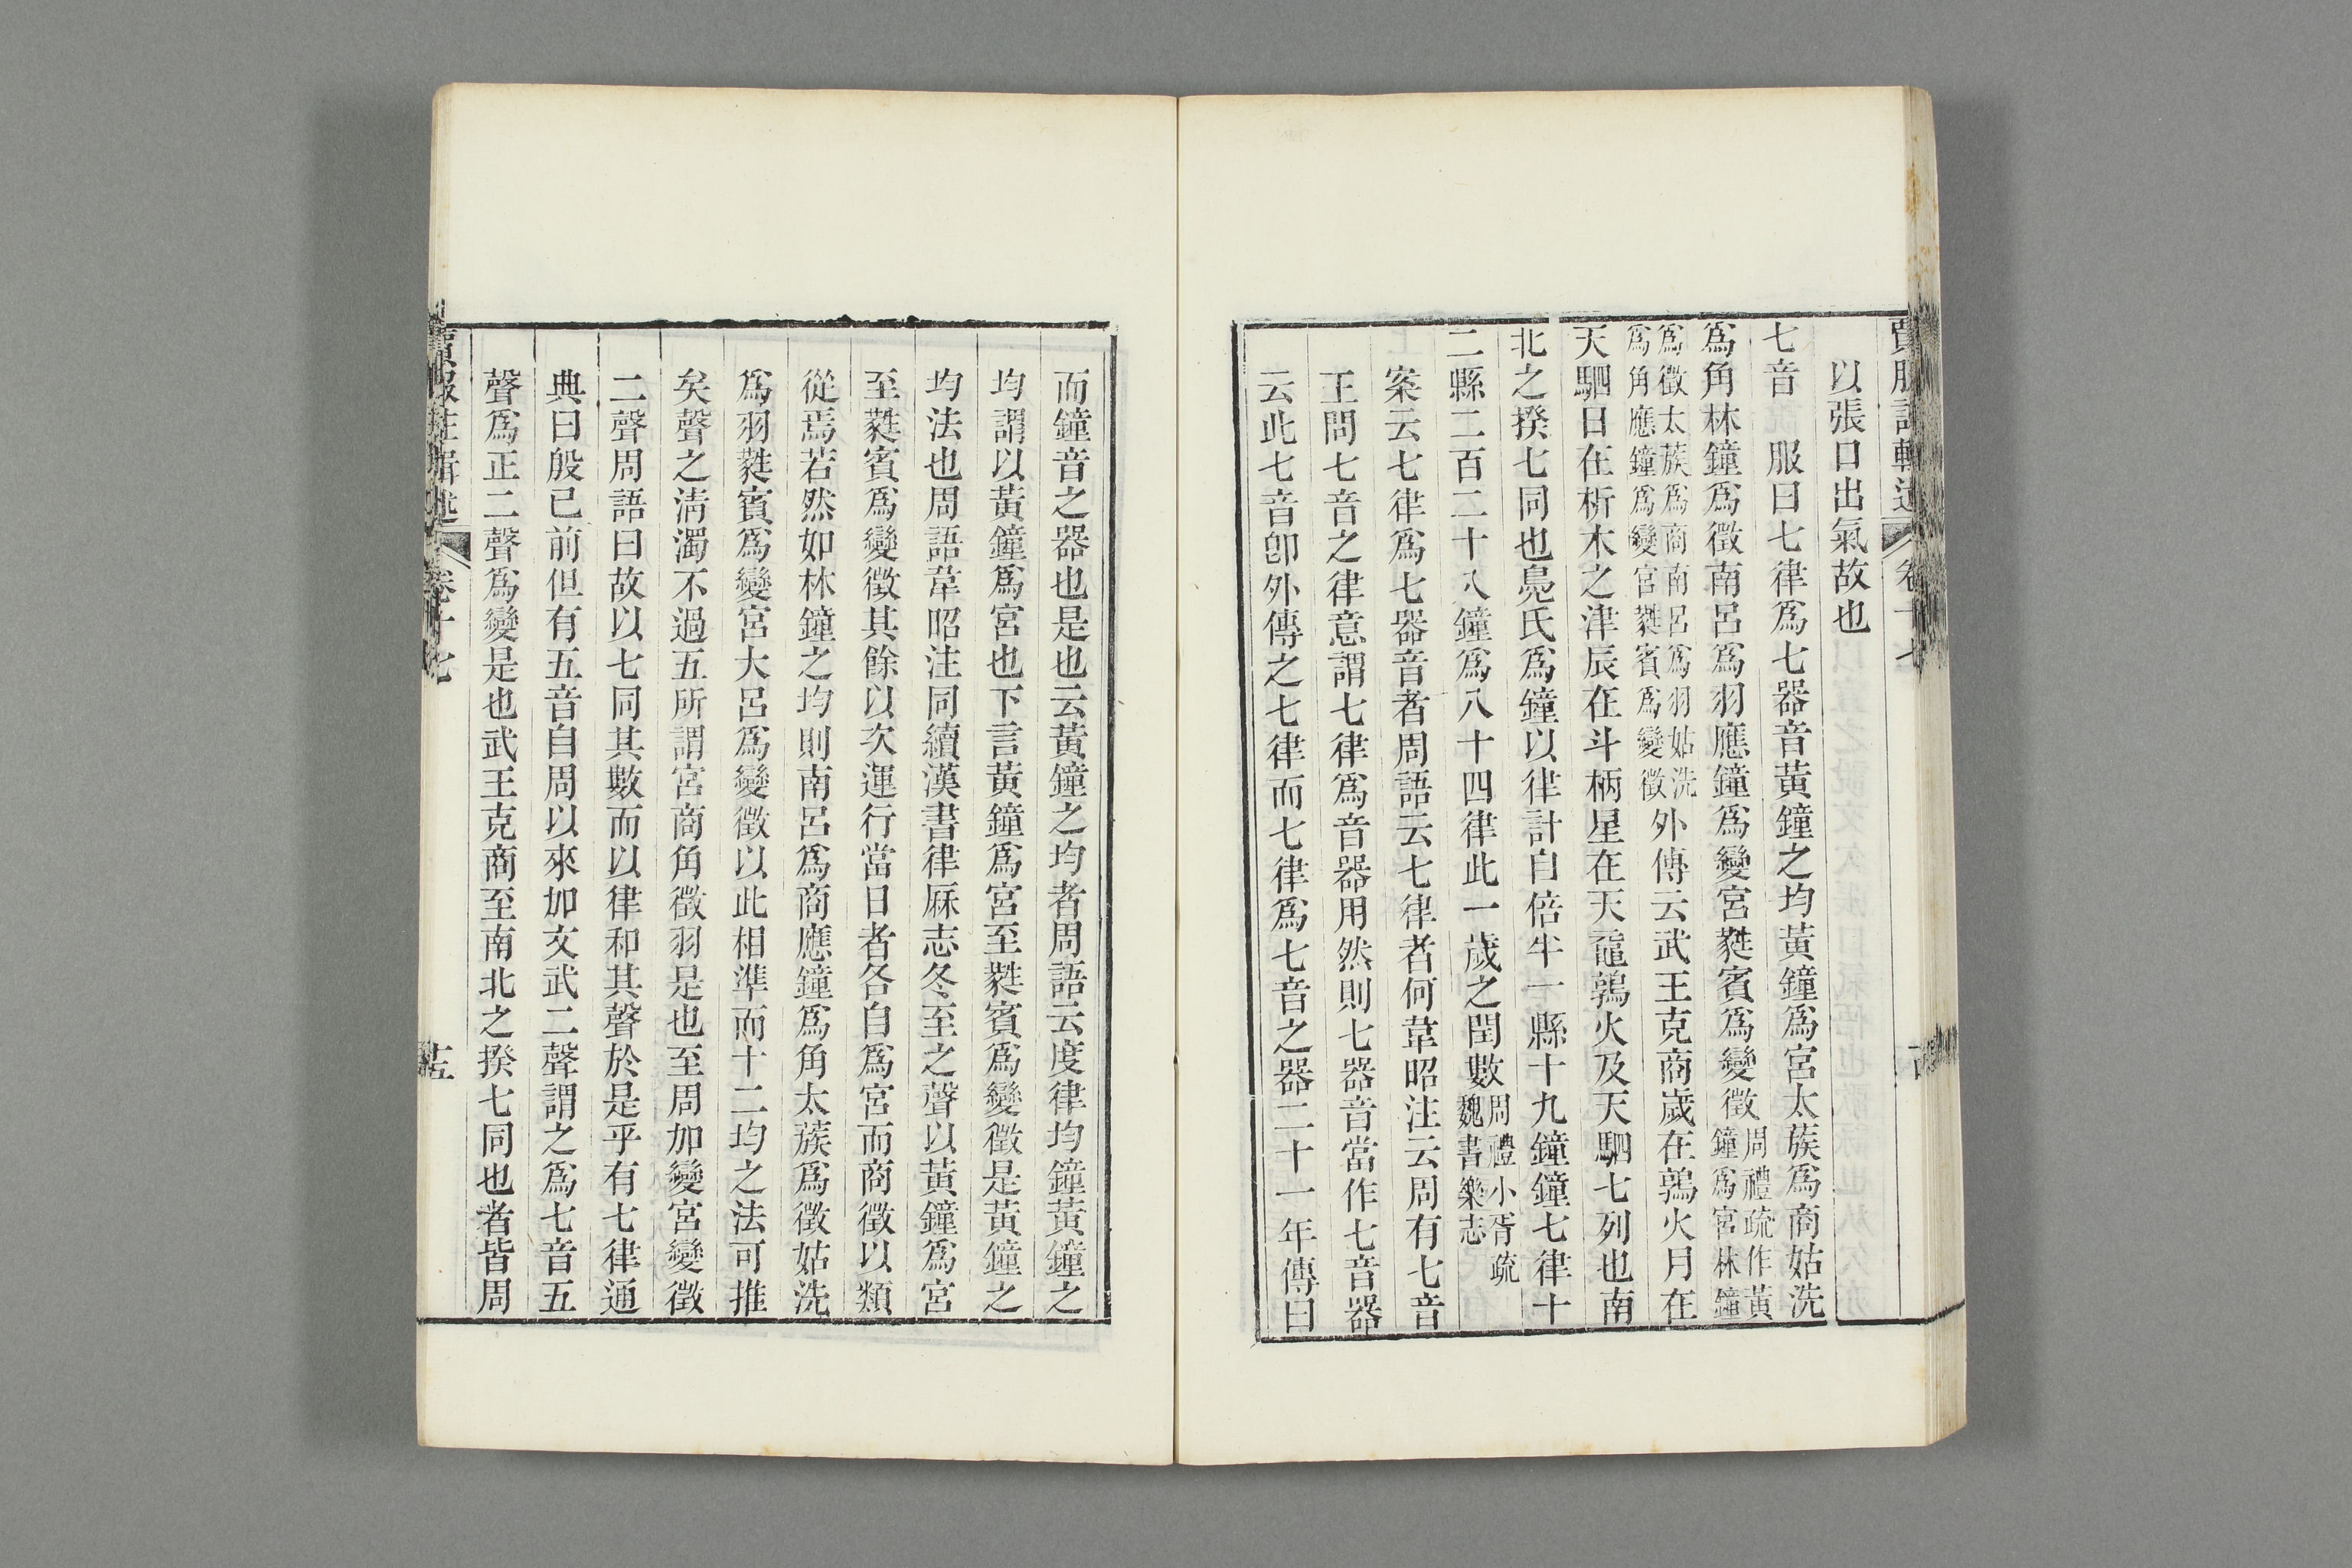 以張口出氣故也
七音　服曰七律爲七器音黃鐘之均黃鐘爲宮太蔟爲商姑洗
爲角林鐘爲徵南呂爲羽應鐘爲變宮蕤賓爲變徵周禮疏作黃鐘爲宮林鐘
爲徵太蔟爲商南呂爲羽姑洗爲角應鐘爲變宮蕤賓爲變徵外傳云武王克商歲在鶉火月在
天駟日在析木之津辰在斗柄星在天黿鶉火及天駟七列也南
北之揆七同也鳧氏爲鐘以律計自倍半一縣十九鐘鐘七律十
二縣二百二十八鐘爲八十四律此一歲之閏數周禮小胥疏魏書樂志
案云七律爲七器音者周語云七律者何韋昭注云周有七音
王問七音之律意謂七律爲音器用然則七器音當作七音器
云此七音卽外傳之七律而七律爲七音之器二十一年傳曰
而鐘音之器也是也云黃鐘之均者周語云度律均鐘黃鐘之
均謂以黃鐘爲宮也下言黃鐘爲宮至蕤賓爲變徵是黃鐘之
均法也周語韋昭注同續漢書律厤志冬至之聲以黃鐘爲宮
至蕤賓爲變徵其餘以次運行當日者各自爲宮而商徵以類
從焉若然如林鐘之均則南呂爲商應鐘爲角太蔟爲徵姑洗
爲羽蕤賓爲變宮大呂爲變徵以此相準而十二均之法可推
矣聲之淸濁不過五所謂宮商角徵羽是也至周加變宮變徵
二聲周語曰故以七同其數而以律和其聲於是乎有七律通
典曰殷已前但有五音自周以來加文武二聲謂之爲七音五
聲爲正二聲爲變是也武王克商至南北之揆七同也者皆周
賈服注輯述　卷十七　十五